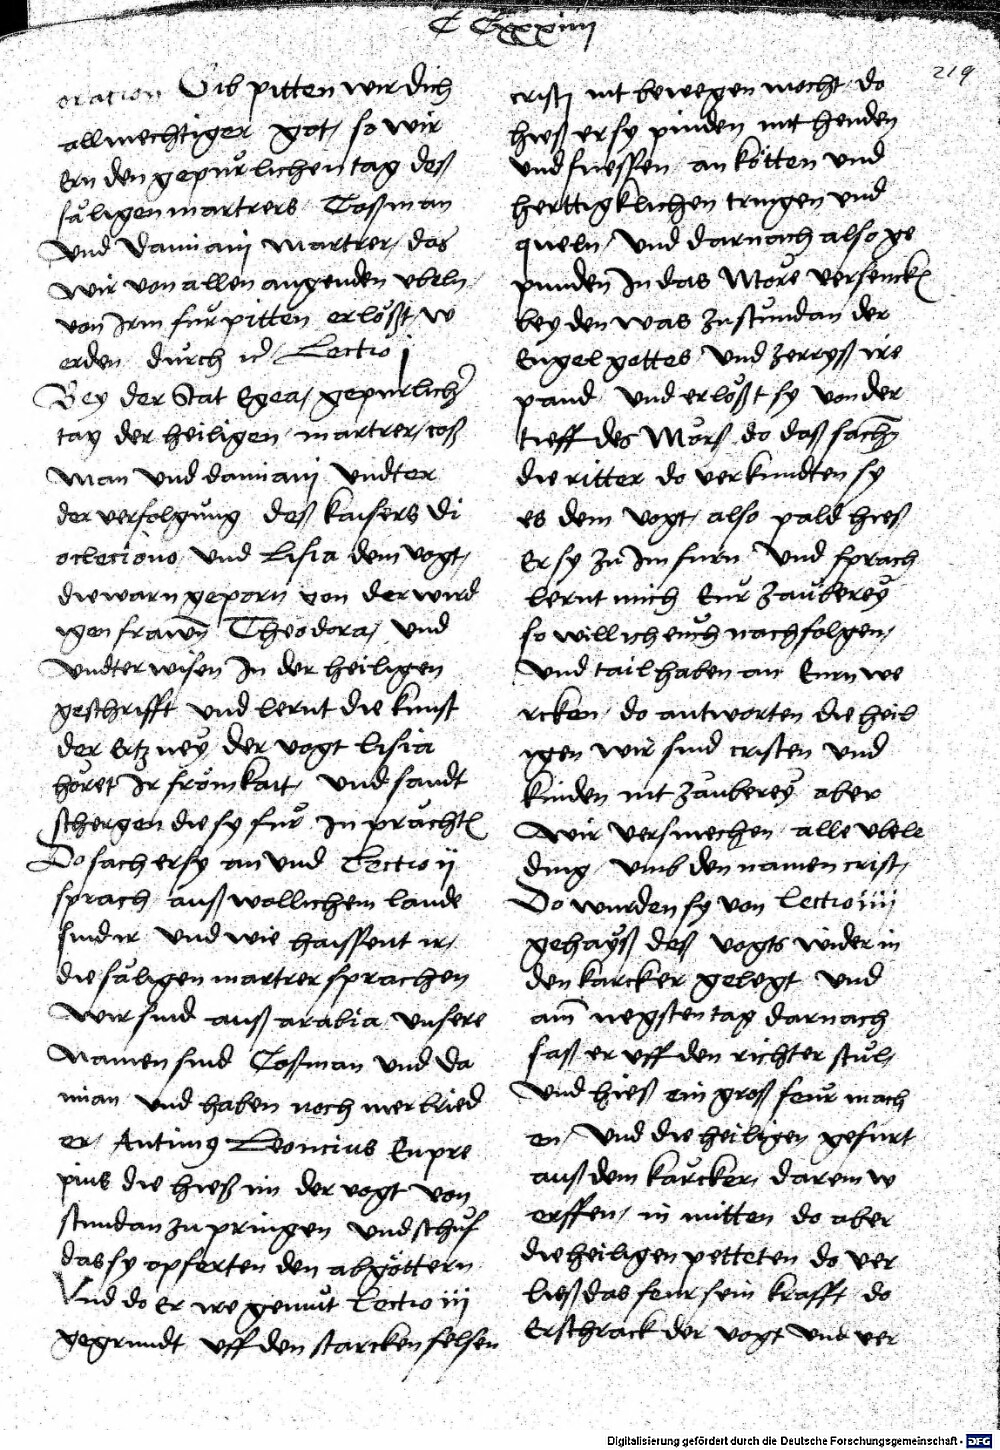 CCxxxiiii
219
oration Gib pitten wir dich
allmechtiger got / so wir
Ern den gepürlichen tag deß
säligen martrers Coßman
Und Damiani martrer / das
wir von allen angenden vbeln
von Irm fürpitten erlößt / w
erden durch Lectio j
Bey der Stat Egea / gepurlich
tag der heiligen martrer / coß
man und damiani Undter
der verfolgung deß kaisers di
ocleciono und Lisia dem vogt /
die warn geporn von der wird
igen frawn Theodora / und
Undterwisen In der heiligen
geschrifft und lernt die kunst
der Ertzney der vogt lisia
höret Ir frömkait / und sandt
schergen die sy für In prächt
Do sach er sy an und Lectio ij
sprach auß wollichem lande
sind ir und wie haissent ir /
die säligen martrer sprachen
Wir sind auß arabia Unsere
Namen sind Coßman und Da
mian und haben noch mer bried
er / Antimq Leoncius Eupre
pius die hieß im der vogt von
stundan zu pringen und schuf
das sy opferten den abgöttern
Und do Er we gemüt Lectio iij
gegrundt uff den starcken felsen
cristj nit bewegen mocht do
hieß er sy pinden mit henden
und fuessen an kötten und
herttigklichen tringen und
queln / und darnach also ge
punden In das More versenck
bey den was zustundan der
Engel gottes und zerryß ire
pand und erlößt sy von der
tieff des Mörs do daß sachn
die ritter do verkundten sy
es dem vogt / also pald hies
Er sy zu Im furn Und sprach
lernt mich Eur zauberey
so will ich euch nachfolgen /
und tail haben an Eurn we
rcken / do antworten die heil
igen wir sind cristen und
kinden nit zauberey aber
Wir versmechen alle ubele
ding umb den namen crist /
Do wurden sy von Lectio iiii
gehayß deß vogts wider in
den karcker gelegt und
am negsten tag darnach
saß er uff den richter stul /
Und hieß ein groß feür mach
en / Und die heiligen gefürt
auß dem karcker / darein w
erffen / in mitten do aber
die heiligen petteten do ver
ließ das feur sein krafft do
Erschrack der vogt und ver
Digitalisierung gefördert durch die Deutsche Forschungsgemeinschaft - DFG